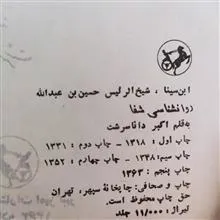 ابن‌سینا، شیخ‌الرئیس حسین‌بن عبدالله
روانشناسی شفا
به‌قلم اکبر داناسرشت
چاپ اول: ۱۳۱۸ - چاپ دوم: ۱۳۳۱
چاپ سیم: ۱۳۴۸ - چاپ چهارم: ۱۳۵۲
چاپ پنجم: ۱۳۶۳
چاپ و صحافی: چاپخانهٔ سپهر، تهران
حق چاپ محفوظ است.
تیراژ: ۱۱/۰۰۰ جلد